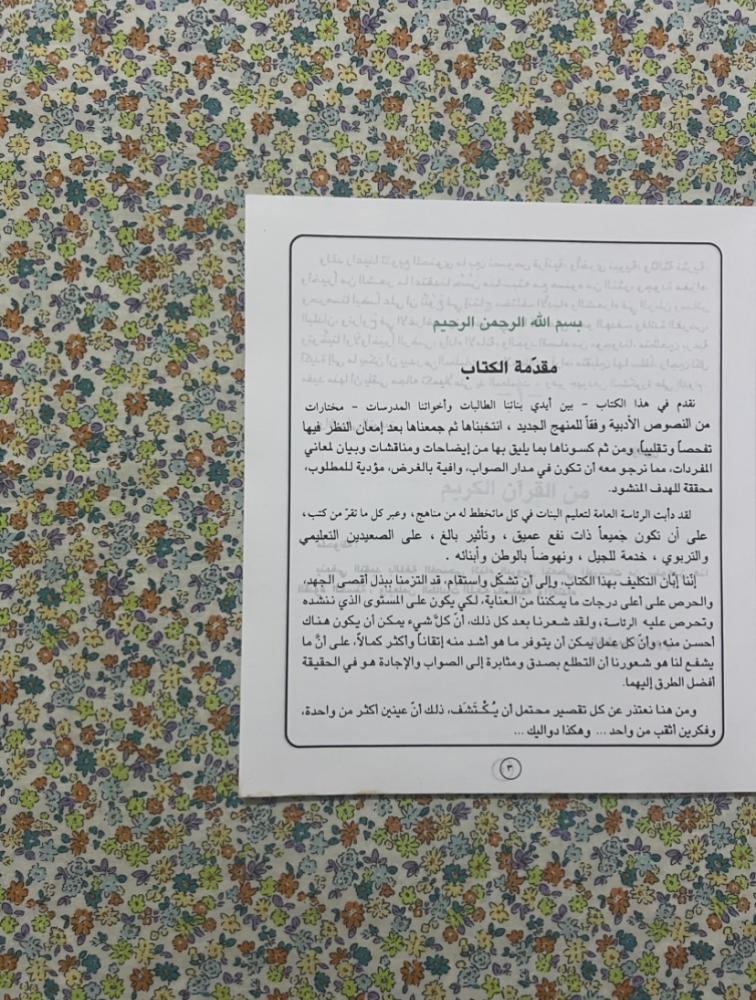 بسم الله الرحمن الرحيم
مقدّمة الكتاب
نقدم في هذا الكتاب - بين أيدي بناتنا الطالبات وأخواتنا المدرسات - مختارات
من النصوص الأدبية وفقاً للمنهج الجديد ، انتخبناها ثم جمعناها بعد إمعان النظر فيها
تفحصاً وتقليباً، ومن ثم كسوناها بما يليق بها من إيضاحات ومناقشات وبيان لمعاني
المفردات، مما نرجو معه أن تكون في مدار الصواب، وافية بالغرض، مؤدية للمطلوب،
محققة للهدف المنشود.
لقد دأبت الرئاسة العامة لتعليم البنات في كل ماتخطط له من مناهج، وعبر كل ما تقرّ من كتب،
على أن تكون جميعاً ذات نفع عميق ، وتأثير بالغ ، على الصعيدين التعليمي
والتربوي ، خدمة للجيل ، ونهوضاً بالوطن وأبنائه .
إننا إبَّان التكليف بهذا الكتاب، وإلى أن تشكّل واستقام، قد التزمنا ببذل أقصى الجهد،
والحرص على أعلى درجات ما يمكننا من العناية، لكي يكون على المستوى الذي ننشده
وتحرص عليه الرئاسة، ولقد شعرنا بعد كل ذلك، أنّ كلّ شيء يمكن أن يكون هناك
أحسن منه وأنّ كل عمل يمكن أن يتوفر ما هو أشد منه إتقاناً وأكثر كمالاً، على أنَّ ما
يشفع لنا هو شعورنا أن التطلع بصدق ومثابرة إلى الصواب والإجادة هو في الحقيقة
أفضل الطرق إليهما.
ومن هنا نعتذر عن كل تقصير محتمل أن يُكْتَشَف، ذلك أنّ عينين أكثر من واحدة،
وفكرين أثقب من واحد ... وهكذا دواليك ...
٣